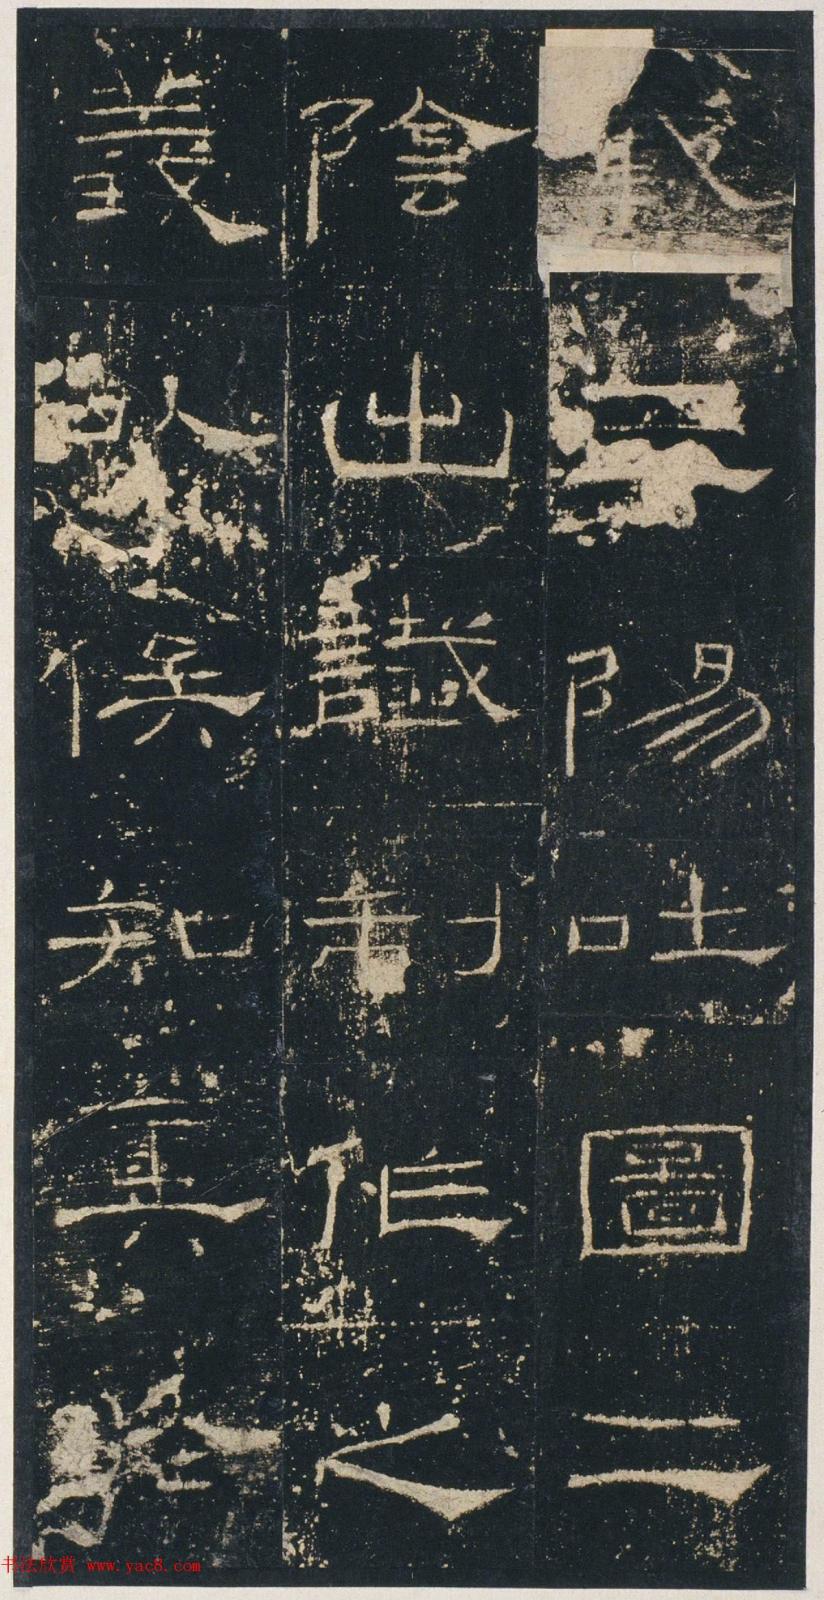 載三陽吐圖二
陰出讖制作之
義以俟知奧於
书法欣赏 www.yac8.com